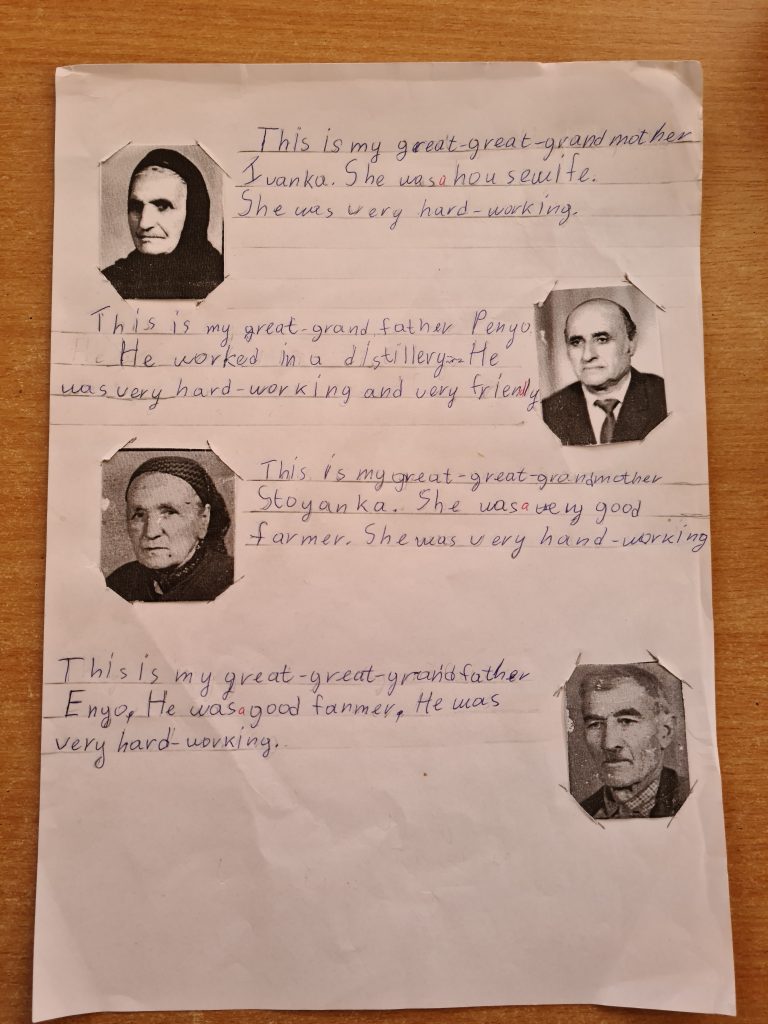 This is my great-great-grandmother
Ivanka. She was a housewife.
She was very hard-working.
This is my great-grand father Penyo
He worked in a distillery. He
was very hard-working and very friendly
This is my great-great-grandmother
Stoyanka. She was a very good
farmer. She was very hard-working
This is my great-great-grandfather
Enyo. He was a good farmer. He was
very hard-working.